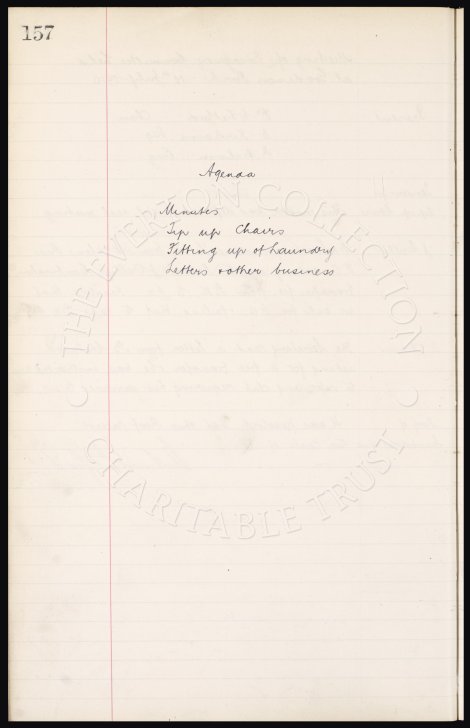 157
Agenda
Minutes
Tip up Chairs
Fitting up of Laundry
Letters & other business
THE EVERTON COLLECTION
CHARITABLE TRUST